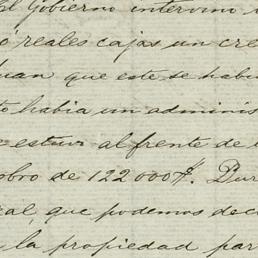 El Gobierno intervino
ó reales cajas un cre
Juan que este se habi
to habia un adminis
estuvo al frente de
obro de 122000$. Dur
ral, que podemos dec
la propiedad par